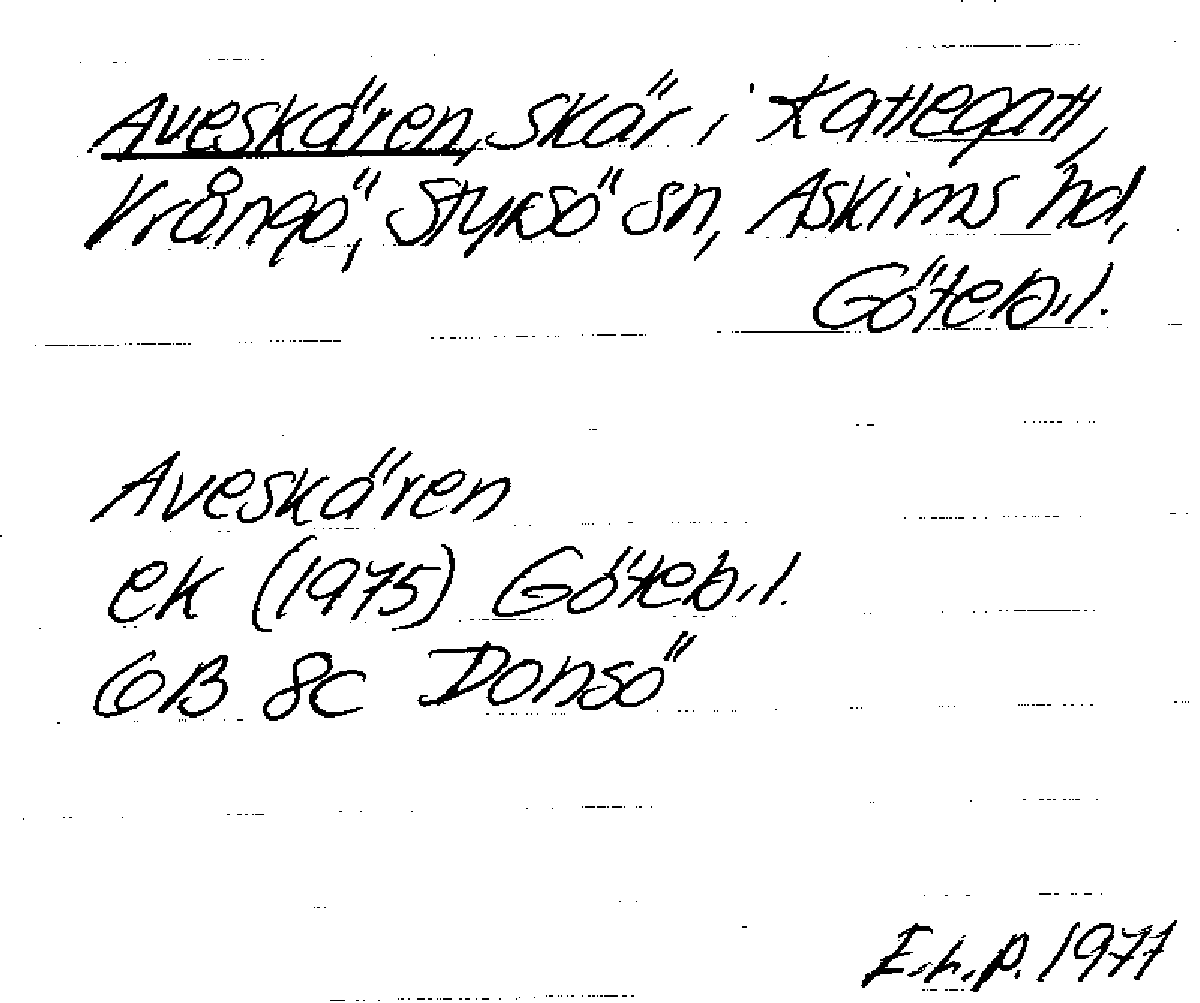 Aveskären, skär i Kattegatt,
Vrångö, Styrsö sn, Askims hd,
Göteb.l.
Aveskären
ek (1975) Göteb.l.
6B 8c Donsö
E.h.p. 1977